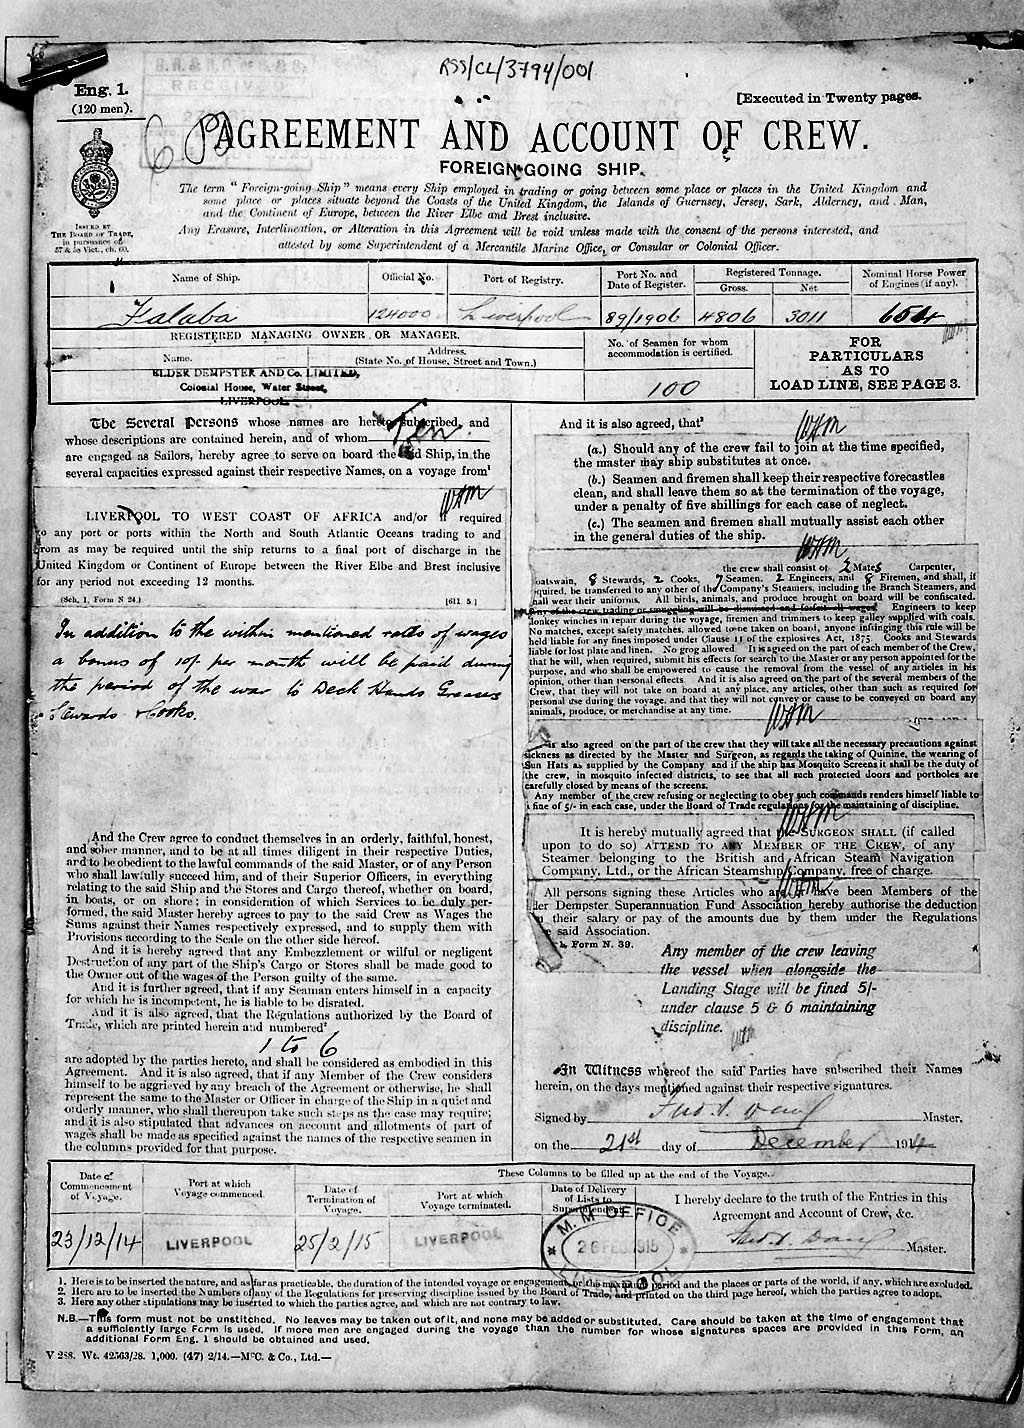 RSS/CL/3794/001
Eng. 1.
(120 men).
RECEIVED
[Executed in Twenty pages.
AGREEMENT AND ACCOUNT OF CREW.
FOREIGN-GOING SHIP.
ISSUED BY
THE BOARD OF TRADE,
in pursuance of
57 & 58 Vict., ch. 60.
The term "Foreign-going Ship" means every Ship employed in trading or going between some place or places in the United Kingdom and
some place or places situate beyond the Coasts of the United Kingdom, the Islands of Guernsey, Jersey, Sark, Alderney, and Man,
and the Continent of Europe, between the River Elbe and Brest inclusive.
Any Erasure, Interlineation, or Alteration in this Agreement will be void unless made with the consent of the persons interested, and
attested by some Superintendent of a Mercantile Marine Office, or Consular or Colonial Officer.
Name of Ship.
Official No.
Port of Registry.
Port No. and
Date of Register.
Registered Tonnage.
Gross.
Net
Nominal Horse Power
of Engines (if any).
Falaba
124000
Liverpool
89/1906
4806
3011
654
REGISTERED MANAGING OWNER OR MANAGER.
Name.
Address.
(State No. of House, Street and Town.)
ELDER DEMPSTER AND Co. LIMITED,
Colonial House, Water Street,
LIVERPOOL.
No. of Seamen for whom
accommodation is certified.
100
FOR
PARTICULARS
AS TO
LOAD LINE, SEE PAGE 3.
The Several Persons whose names are hereto subscribed, and
whose descriptions are contained herein, and of whom Ten
are engaged as Sailors, hereby agree to serve on board the said Ship, in the
several capacities expressed against their respective Names, on a voyage from¹
LIVERPOOL TO WEST COAST OF AFRICA and/or if required
to any port or ports within the North and South Atlantic Oceans trading to and
from as may be required until the ship returns to a final port of discharge in the
United Kingdom or Continent of Europe between the River Elbe and Brest inclusive
for any period not exceeding 12 months.
(Sch. 1, Form N 24.)
[611 5]
In addition to the within mentioned rates of wages
a bonus of 10/- per month will be paid during
the period of the war to Deck Hands Greasers
Stewards & Cooks.
And the Crew agree to conduct themselves in an orderly, faithful, honest,
and sober manner, and to be at all times diligent in their respective Duties,
and to be obedient to the lawful commands of the said Master, or of any Person
who shall lawfully succeed him, and of their Superior Officers, in everything
relating to the said Ship and the Stores and Cargo thereof, whether on board,
in boats, or on shore; in consideration of which Services to be duly per-
formed, the said Master hereby agrees to pay to the said Crew as Wages the
Sums against their Names respectively expressed, and to supply them with
Provisions according to the Scale on the other side hereof.
And it is hereby agreed that any Embezzlement or wilful or negligent
Destruction of any part of the Ship's Cargo or Stores shall be made good to
the Owner out of the wages of the Person guilty of the same.
And it is further agreed, that if any Seaman enters himself in a capacity
for which he is incompetent, he is liable to be disrated.
And it is also agreed, that the Regulations authorized by the Board of
Trade, which are printed herein and numbered²
1 to 6
are adopted by the parties hereto, and shall be considered as embodied in this
Agreement. And it is also agreed, that if any Member of the Crew considers
himself to be aggrieved by any breach of the Agreement or otherwise, he shall
represent the same to the Master or Officer in charge of the Ship in a quiet and
orderly manner, who shall thereupon take such steps as the case may require;
and it is also stipulated that advances on account and allotments of part of
wages shall be made as specified against the names of the respective seamen in
the columns provided for that purpose.
And it is also agreed, that³
(a.) Should any of the crew fail to join at the time specified,
the master may ship substitutes at once.
(b.) Seamen and firemen shall keep their respective forecastles
clean, and shall leave them so at the termination of the voyage,
under a penalty of five shillings for each case of neglect.
(c.) The seamen and firemen shall mutually assist each other
in the general duties of the ship.
the crew shall consist of 2 Mates Carpenter,
oatswain, 8 Stewards, 2 Cooks, 7 Seamen. 2 Engineers, and 8 Firemen, and shall, if
quired, be transferred to any other of the Company's Steamers, including the Branch Steamers, and
hall wear their uniforms. All birds, animals, and produce brought on board will be confiscated.
Any of the crew trading or smuggling will be dismissed and forfeit all wages. Engineers to keep
donkey winches in repair during the voyage, firemen and trimmers to keep galley supplied with coals.
No matches, except safety matches, allowed to be taken on board, anyone infringing this rule will be
held liable for any fines imposed under Clause 11 of the explosives Act, 1875 Cooks and Stewards
liable for lost plate and linen. No grog allowed It is agreed on the part of each member of the Crew,
that he will, when required, submit his effects for search to the Master or any person appointed for the
purpose, and who shall be empowered to cause the removal from the vessel of any articles in his
opinion, other than personal effects And it is also agreed on the part of the several members of the
Crew, that they will not take on board at any place, any articles, other than such as required for
personal use during the voyage, and that they will not convey or cause to be conveyed on board any
animals, produce, or merchandise at any time.
is also agreed on the part of the crew that they will take all the necessary precautions against
sickness as directed by the Master and Surgeon, as regards the taking of Quinine, the wearing of
Sun Hats as supplied by the Company and if the ship has Mosquito Screens it shall be the duty of
the crew, in mosquito infected districts, to see that all such protected doors and portholes are
carefully closed by means of the screens.
Any member of the crew refusing or neglecting to obey such commands renders himself liable to
a fine of 5/- in each case, under the Board of Trade regulations for the maintaining of discipline.
It is hereby mutually agreed that the SURGEON SHALL (if called
upon to do so) ATTEND TO ANY MEMBER OF THE CREW, of any
Steamer belonging to the British and African Steam Navigation
Company, Ltd., or the African Steamship Company, free of charge.
All persons signing these Articles who are or have been Members of the
der Dempster Superannuation Fund Association, hereby authorise the deduction
their salary or pay of the amounts due by them under the Regulations
said Association.
1. Form N. 39.
Any member of the crew leaving
the vessel when alongside the
Landing Stage will be fined 5/-
under clause 5 & 6 maintaining
discipline.
In Witness whereof the said Parties have subscribed their Names
herein, on the days mentioned against their respective signatures.
Signed by Master.
on the 21st day of December 1914
These Columns to be filled up at the end of the Voyage.
Date of
Commencement
of Voyage.
Port at which
Voyage commenced.
Date of
Termination of
Voyage.
Port at which
Voyage terminated.
Date of Delivery
of Lists to
Superintendent.
I hereby declare to the truth of the Entries in this
Agreement and Account of Crew, &c.
23/12/14
LIVERPOOL
25/2/15
LIVERPOOL
M.M OFFICE
26 FEB 1915
LIVERPOOL
Master.
1. Here is to be inserted the nature, and as far as practicable, the duration of the intended voyage or engagement, or the maximum period and the places or parts of the world, if any, which are excluded.
2. Here are to be inserted the Numbers of any of the Regulations for preserving discipline issued by the Board of Trade, and printed on the third page hereof, which the parties agree to adopt.
3. Here any other stipulations may be inserted to which the parties agree, and which are not contrary to law.
N.B.—This form must not be unstitched. No leaves may be taken out of it, and none may be added or substituted. Care should be taken at the time of engagement that
a sufficiently large Form is used. If more men are engaged during the voyage than the number for whose signatures spaces are provided in this Form, an
additional Form Eng. 1 should be obtained and used.
V 288. Wt. 42563/28. 1,000. (47) 2/14.—McC. & Co., Ltd.—